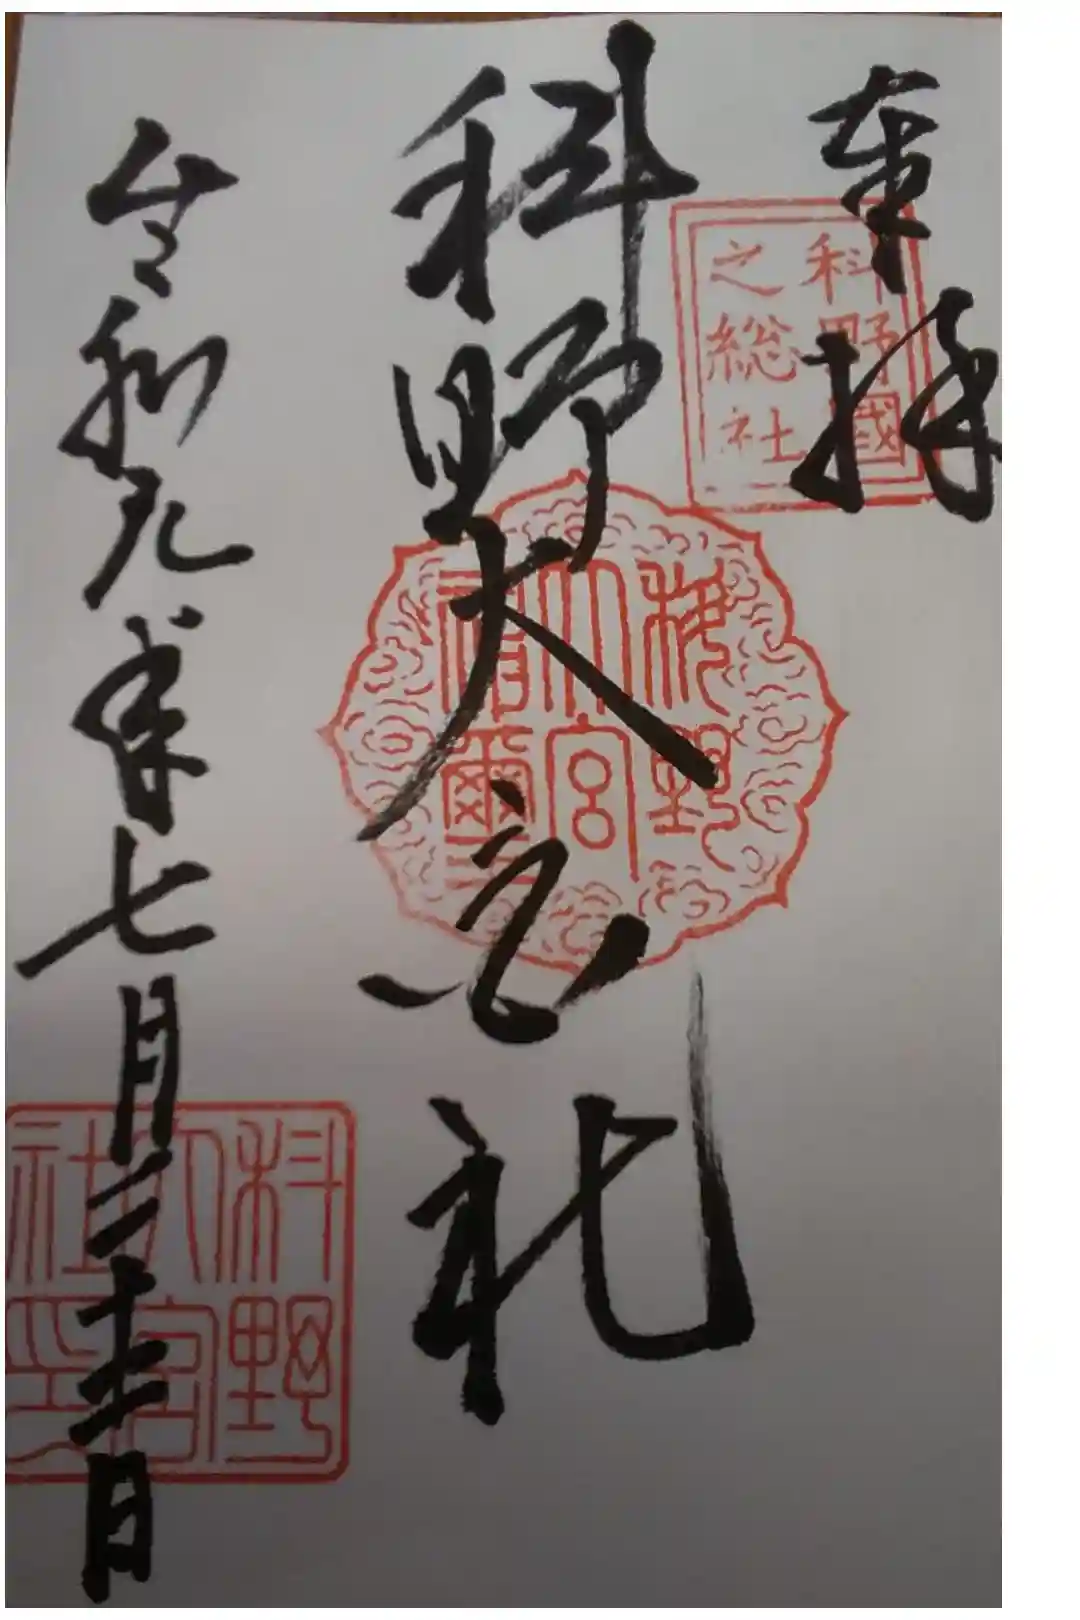 奉拝
科野國
之総社
科野大宮社
科野
大宮
神璽
令和元年七月
科野
大宮
社印